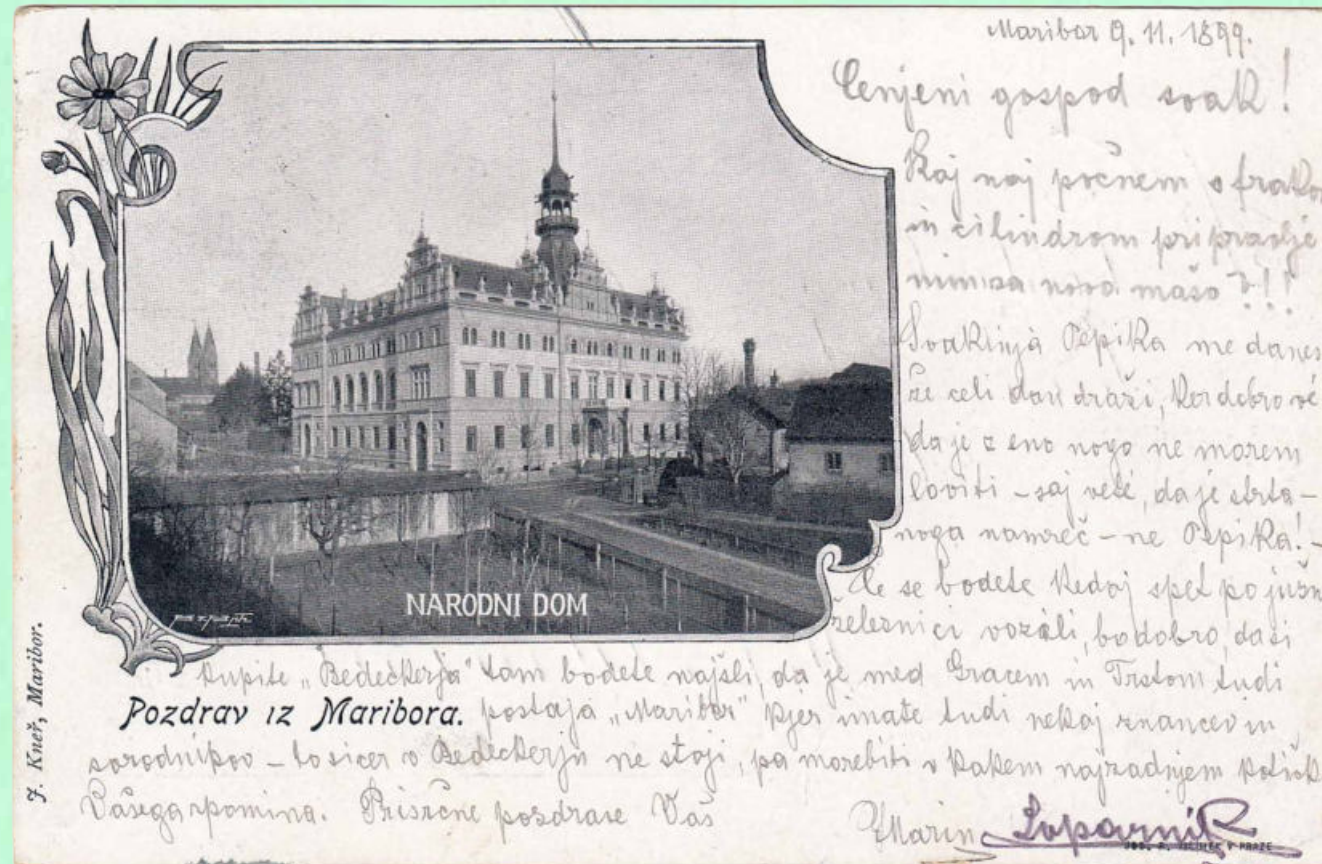 Maribor 9. 11. 1899.
Cenjeni gospod svak!
Kaj naj počnem s frakom
in cilindrom pripravlje
nim za novo mašo?!!
Svakinja Pepika me danes
že celi dan draži, ker dobro vé
da je z eno nogo ne morem
loviti – saj veste, da je strta –
noga namreč – ne Pepika! –
Če se bodete kedaj spet po južni
železnici vozili, bo dobro, da si
kupite „Bedeckerja" tam bodete najšli, da je med Gracem in Trstom tudi
postaja „Maribor" kjer imate tudi nekaj znancev in
sorodnikov – to sicer v Bedeckerju ne stoji, pa morebiti v kakem najzadnjem kotičk
Vašega spomina. Prisrčne pozdrave Vaš
NARODNI DOM
Pozdrav iz Maribora.
J. Kneř, Maribor.